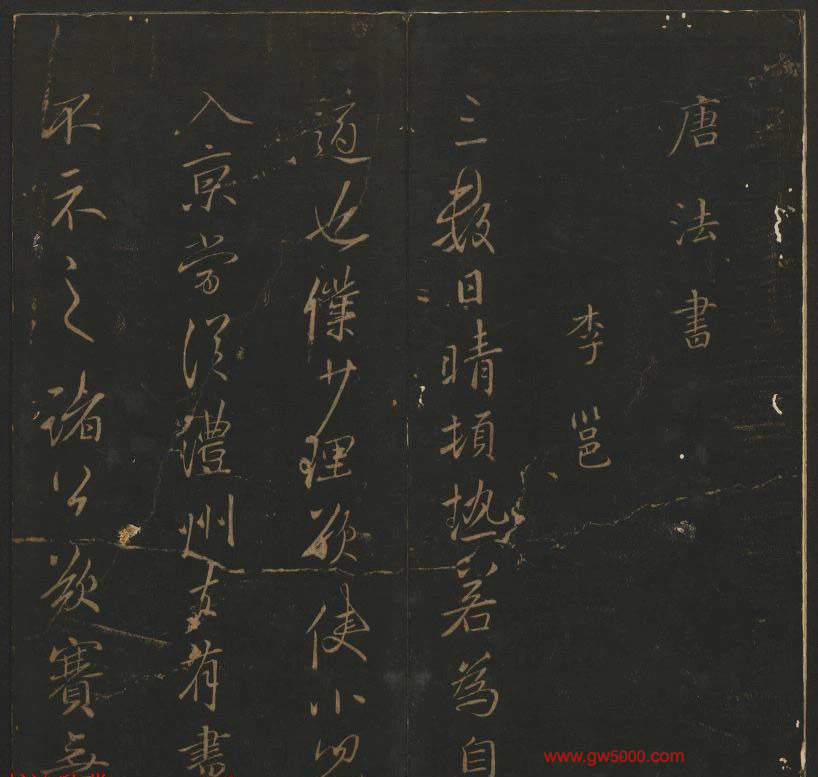 唐法書
李邕
三數日晴頓熱若為自
適也僕少理欲使小兒
入京嘗從澧州支有書
不示之諸公欲賽無
www.gw5000.com